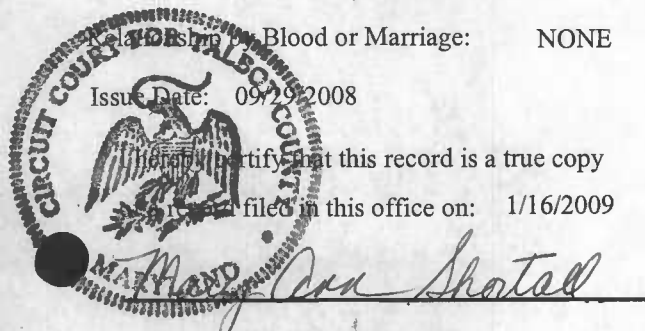 Relationship by Blood or Marriage: NONE
Issue Date: 09/29/2008
I hereby certify that this record is a true copy
of a record filed in this office on: 1/16/2009
Mary Ann Shortall
CIRCUIT COURT FOR TALBOT COUNTY
MARYLAND